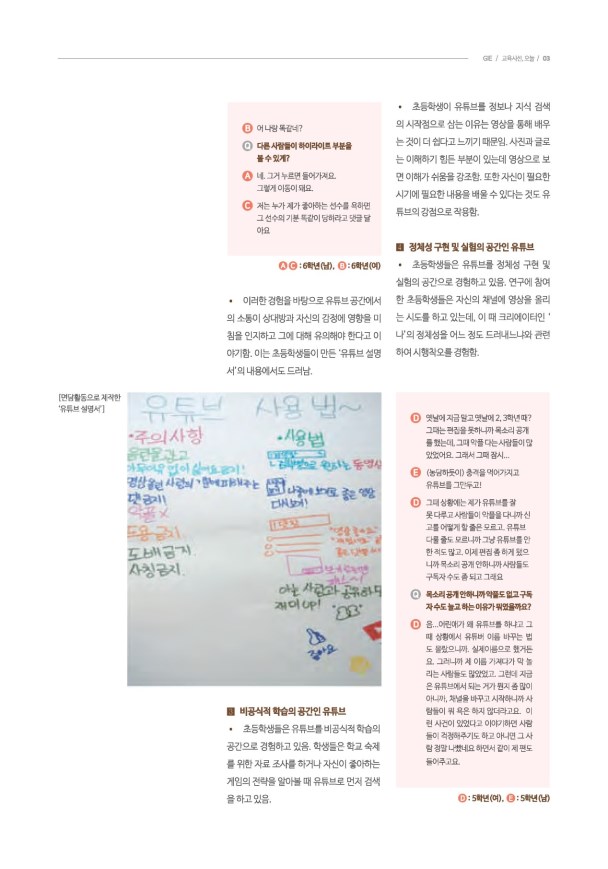 GIE / 교육사진, 오늘 / 03
B 어 나랑 똑같네?
Q 다른 사람들이 하이라이트 부분을
볼 수 있게?
A 네. 그거 누르면 들어가져요.
그렇게 이동이 돼요.
C 저는 누가 제가 좋아하는 선수를 욕하면
그 선수의 기분 똑같이 당하라고 댓글 달
아요
A C : 6학년(남), B : 6학년(여)
• 이러한 경험을 바탕으로 유튜브 공간에서
의 소통이 상대방과 자신의 감정에 영향을 미
침을 인지하고 그에 대해 유의해야 한다고 이
야기함. 이는 초등학생들이 만든 ‘유튜브 설명
서’의 내용에서도 드러남.
[면담활동으로 제작한
‘유튜브 설명서’]
유튜브 사용법~
•주의사항
음란물광고
아무이유 없이 싫어요 금지!
댓글금지!
악플X
도용금지
도배금지
사칭금지.
•사용법
아는 사람과 공유하면
재미 UP!
좋아요
3 비공식적 학습의 공간인 유튜브
• 초등학생들은 유튜브를 비공식적 학습의
공간으로 경험하고 있음. 학생들은 학교 숙제
를 위한 자료 조사를 하거나 자신이 좋아하는
게임의 전략을 알아볼 때 유튜브로 먼저 검색
을 하고 있음.
• 초등학생이 유튜브를 정보나 지식 검색
의 시작점으로 삼는 이유는 영상을 통해 배우
는 것이 더 쉽다고 느끼기 때문임. 사진과 글로
는 이해하기 힘든 부분이 있는데 영상으로 보
면 이해가 쉬움을 강조함. 또한 자신이 필요한
시기에 필요한 내용을 배울 수 있다는 것도 유
튜브의 강점으로 작용함.
4 정체성 구현 및 실험의 공간인 유튜브
• 초등학생들은 유튜브를 정체성 구현 및
실험의 공간으로 경험하고 있음. 연구에 참여
한 초등학생들은 자신의 채널에 영상을 올리
는 시도를 하고 있는데, 이 때 크리에이터인 ‘
나’의 정체성을 어느 정도 드러내느냐와 관련
하여 시행착오를 경험함.
D 옛날에 지금 말고 옛날에 2, 3학년 때?
그때는 편집을 못하니까 목소리 공개
를 했는데, 그때 악플 다는 사람들이 많
았었어요. 그래서 그때 잠시...
E (농담하듯이) 충격을 먹어가지고
유튜브를 그만두고!
D 그때 상황에는 제가 유튜브를 잘
못 다루고 사람들이 악플을 다니까 신
고를 어떻게 할 줄은 모르고. 유튜브
다룰 줄도 모르니까 그냥 유튜브를 안
한 적도 많고. 이제 편집 좀 하게 됐으
니까 목소리 공개 안하니까 사람들도
구독자 수도 좀 되고 그래요
Q 목소리 공개 안하니까 악플도 없고 구독
자 수도 늘고 하는 이유가 뭐였을까요?
D 음...어린애가 왜 유튜브를 하냐고 그
때 상황에서 유튜버 이름 바꾸는 법
도 몰랐으니까. 실제이름으로 했거든
요. 그러니까 제 이름 가져다가 막 놀
리는 사람들도 많았었고. 그런데 지금
은 유튜브에서 되는 거가 뭔지 좀 많이
아니까, 채널을 바꾸고 시작하니까 사
람들이 뭐 욕은 하지 않더라고요. 이
런 사건이 있었다고 이야기하면 사람
들이 걱정해주기도 하고 아니면 그 사
람 정말 나빴네요 하면서 같이 제 편도
들어주고요.
D : 5학년(여), E : 5학년(남)